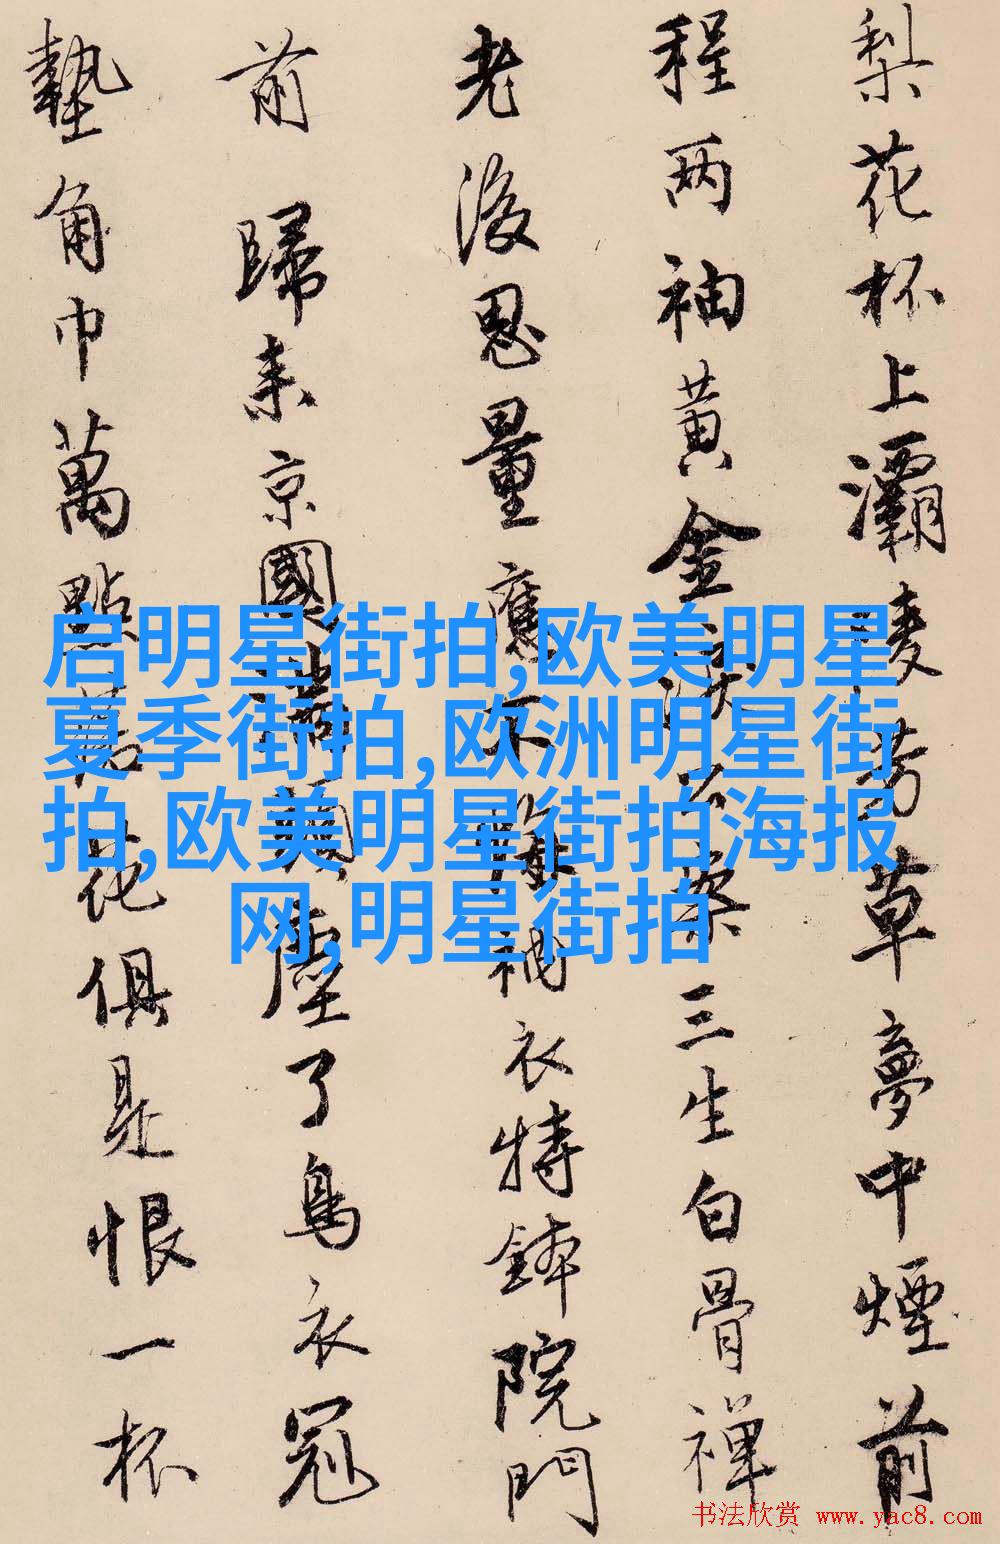 梨花杯上灞陵芳草夢中煙前
程两袖黄金淚公案三生白骨禪
老後思量應不悔衲衣持鉢院門
前歸来京國塵了烏衣冠
墊角巾萬點落花俱是恨一杯
启明星街拍,欧美明星
夏季街拍,欧洲明星街
拍,欧美明星街拍海报
网,明星街拍
书法欣赏 www.yac8.com